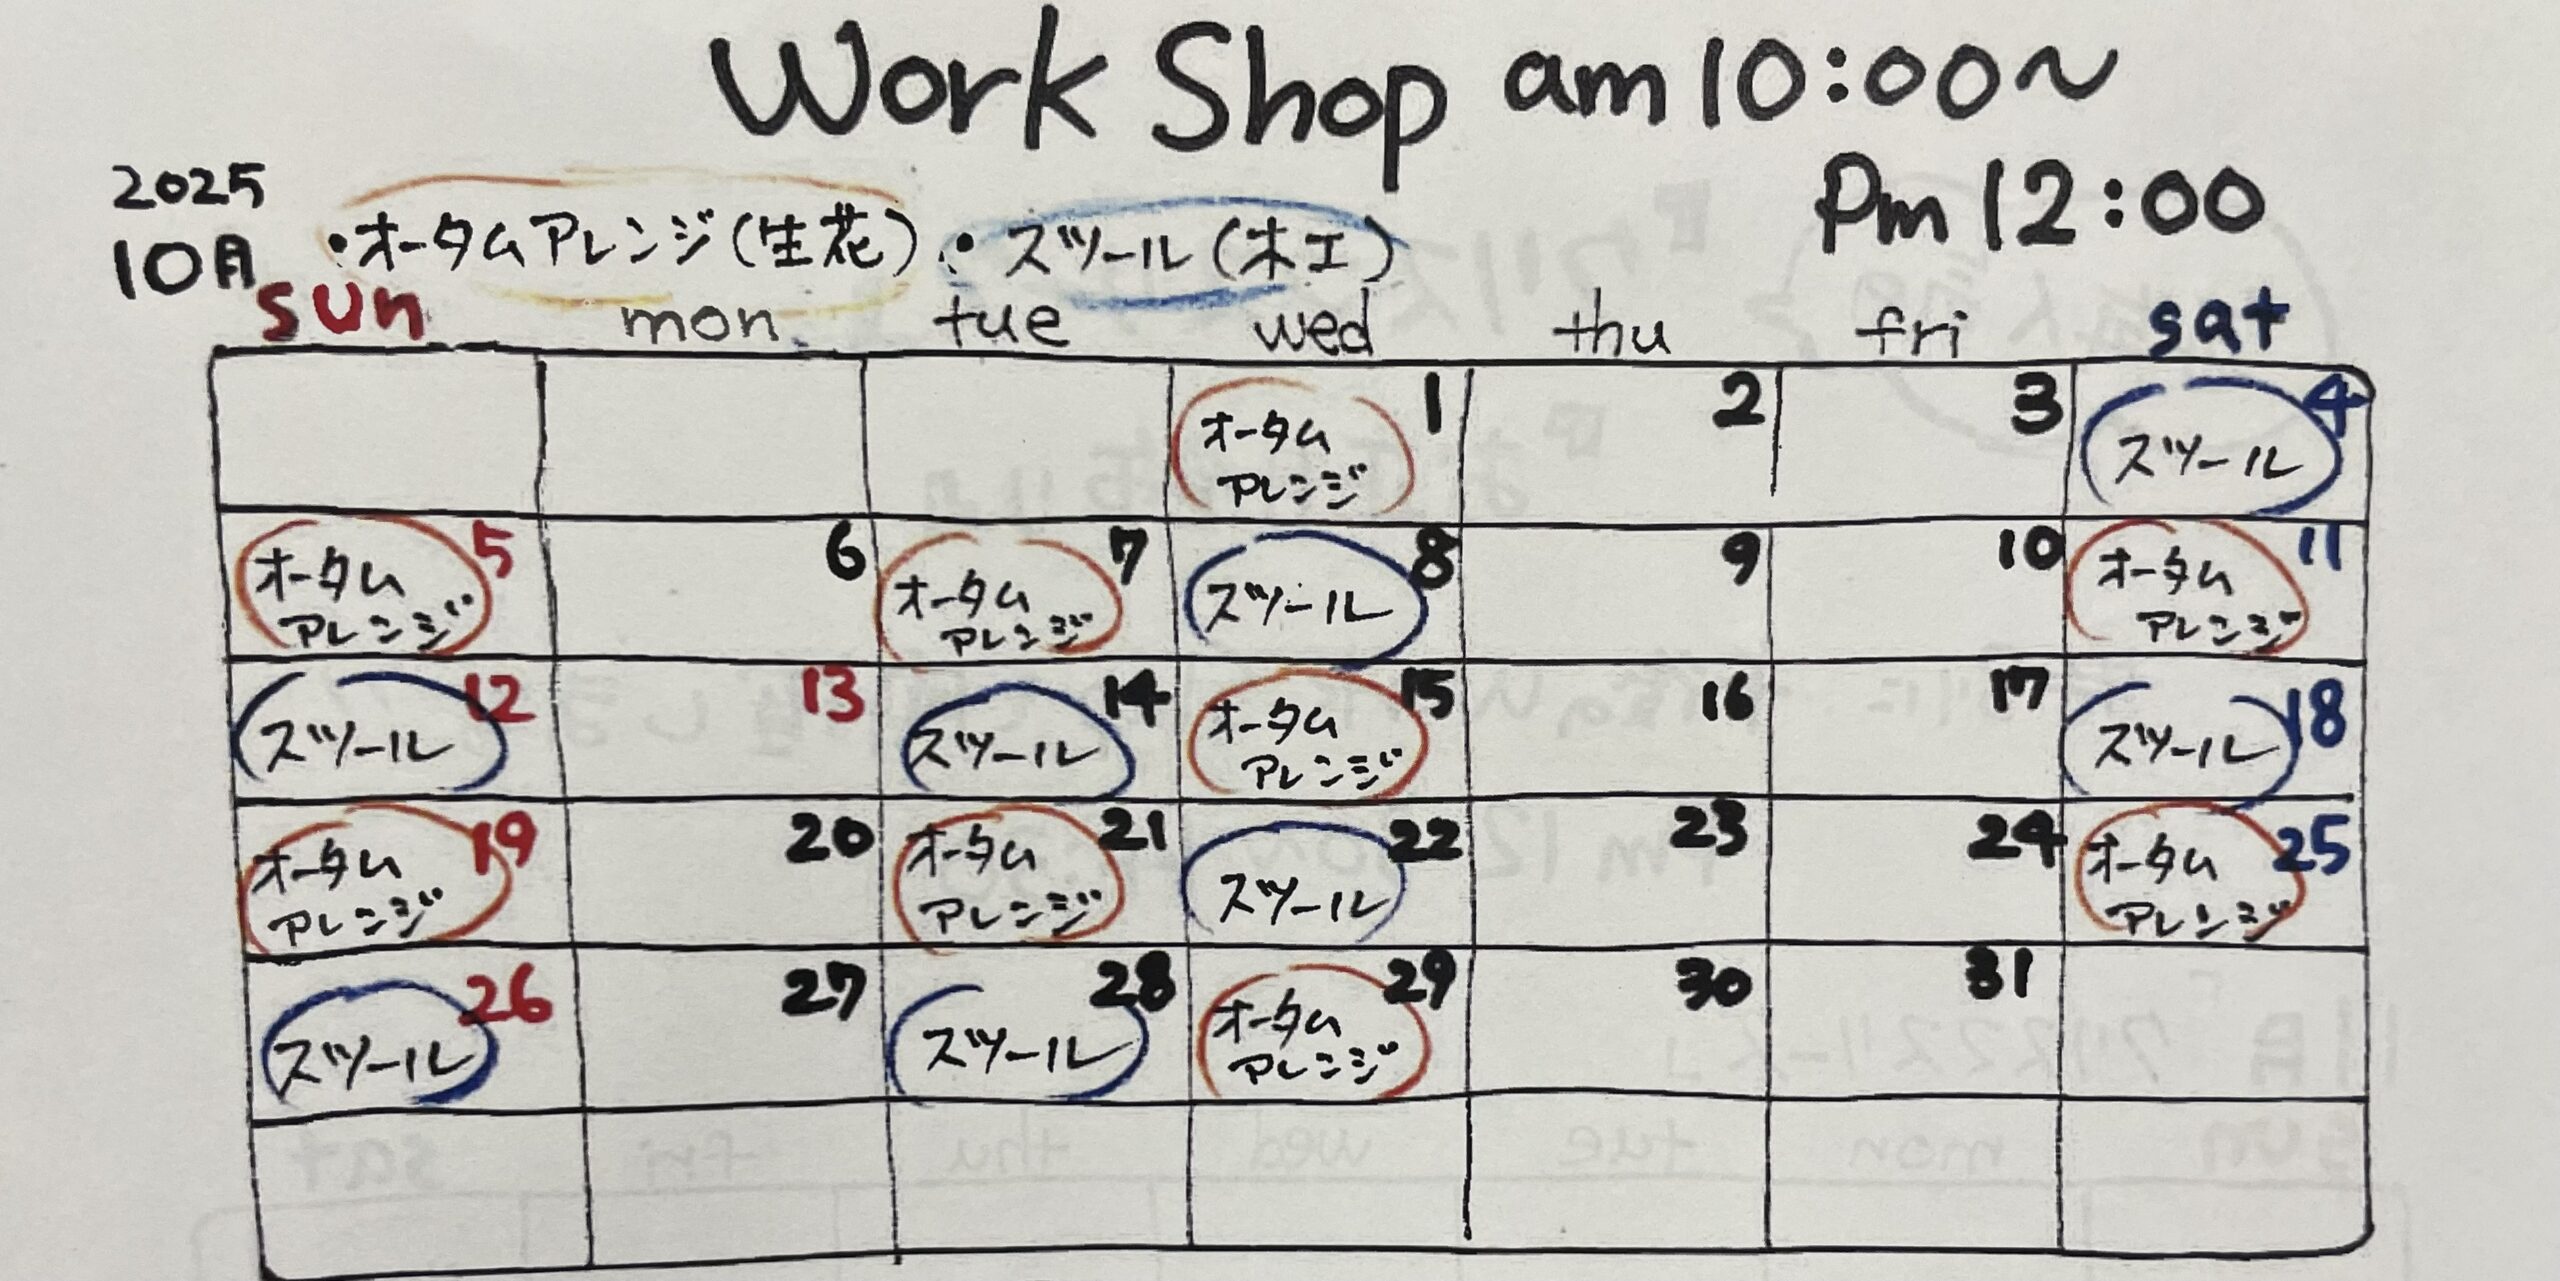 Work Shop am 10:00～
Pm 12:00
2025
10月
・オータムアレンジ(生花) ・ズツール(木工)
sun mon tue wed thu fri sat
1 2 3 4
オータム
アレンジ
ズツール
5 6 7 8 9 10 11
オータム
アレンジ
オータム
アレンジ
ズツール
オータム
アレンジ
12 13 14 15 16 17 18
ズツール
ズツール
オータム
アレンジ
ズツール
19 20 21 22 23 24 25
オータム
アレンジ
オータム
アレンジ
ズツール
オータム
アレンジ
26 27 28 29 30 31
ズツール
ズツール
オータム
アレンジ